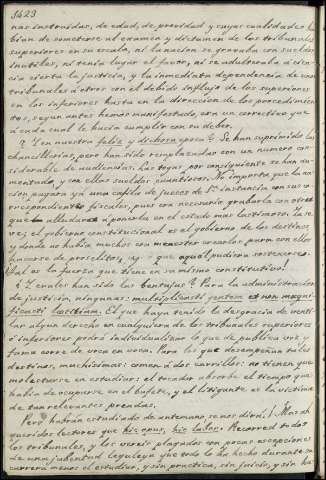 1423
nas instruidas, de edad, de providad y cuyas cualidades ha-
bian de someterse al exámen y dictámen de los tribunales
superiores en su escala, ni la nacion se gravaba con sueldos
inutiles, ni tenía lugar el favor, ni se adulteraba á cien-
cia cierta la justicia, y la inmediata dependencia de unos
tribunales á otros con el debido influjo de los superiores
en los inferiores hasta en la direccion de los procedimien-
tos, segun antes hemos manifestado, era un correctivo que
á cada cual le hacía cumplir con su deber.
¿Y en nuestra feliz y dichosa epoca? Se han suprimido las
chancillerias, pero han sido remplazadas con un numero con-
siderable de audiencias: las togas por consiguiente se han au-
mentado, y con ellas sueldos cuantiosos. No importa que la na-
cion pagara ya una copia de jueces de 1ª instancia con sus co-
rrespondientes fiscales, pues era necesario grabarla con otros
que la ayudaran á ponerla en el estado mas lastimoso. La se-
ve; el gobierno constitucional es el gobierno de los destinos,
y donde no había muchos era menester crearlos para con ellos
hacerse de proselitos, ¡ay que aquel pudiera sostenerse!
¡Tal es la fuerza que tiene en sí mismo constitutivo!
¿Y cuales han sido las ventajas? Para la administracion
de justicia, ningunas: multiplicasti gentem et non magni-
ficasti laetitiam. El que haya tenido la desgracia de venti-
lar algun derecho en cualquiera de los tribunales superiores
ó inferiores podrá individualizar lo que de publica voz y
fama corre de voca en voca. Para los que desempeñan tales
destinos, muchisimas: comen á dos carrillos: no tienen que
molestarse en estudiar: el tocador absorbe el tiempo que
había de ocuparse en el bufete, y el litigante es la víctima
de tan relevantes prendas.
Pero habrán estudiado de antemano, se nos dirá! Mas ah
queridos lectores que hic opus, hic labor. Recorred todos
los tribunales, y los vereis plagados con pocas escepciones
de una juventud leguleya que todo lo ha hecho durante su
carrera menos el estudiar, y sin practica, sin juicio, y sin ha-